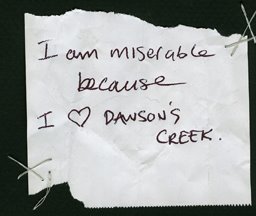 I am miserable
because
I ♡ DAWSON'S
CREEK.